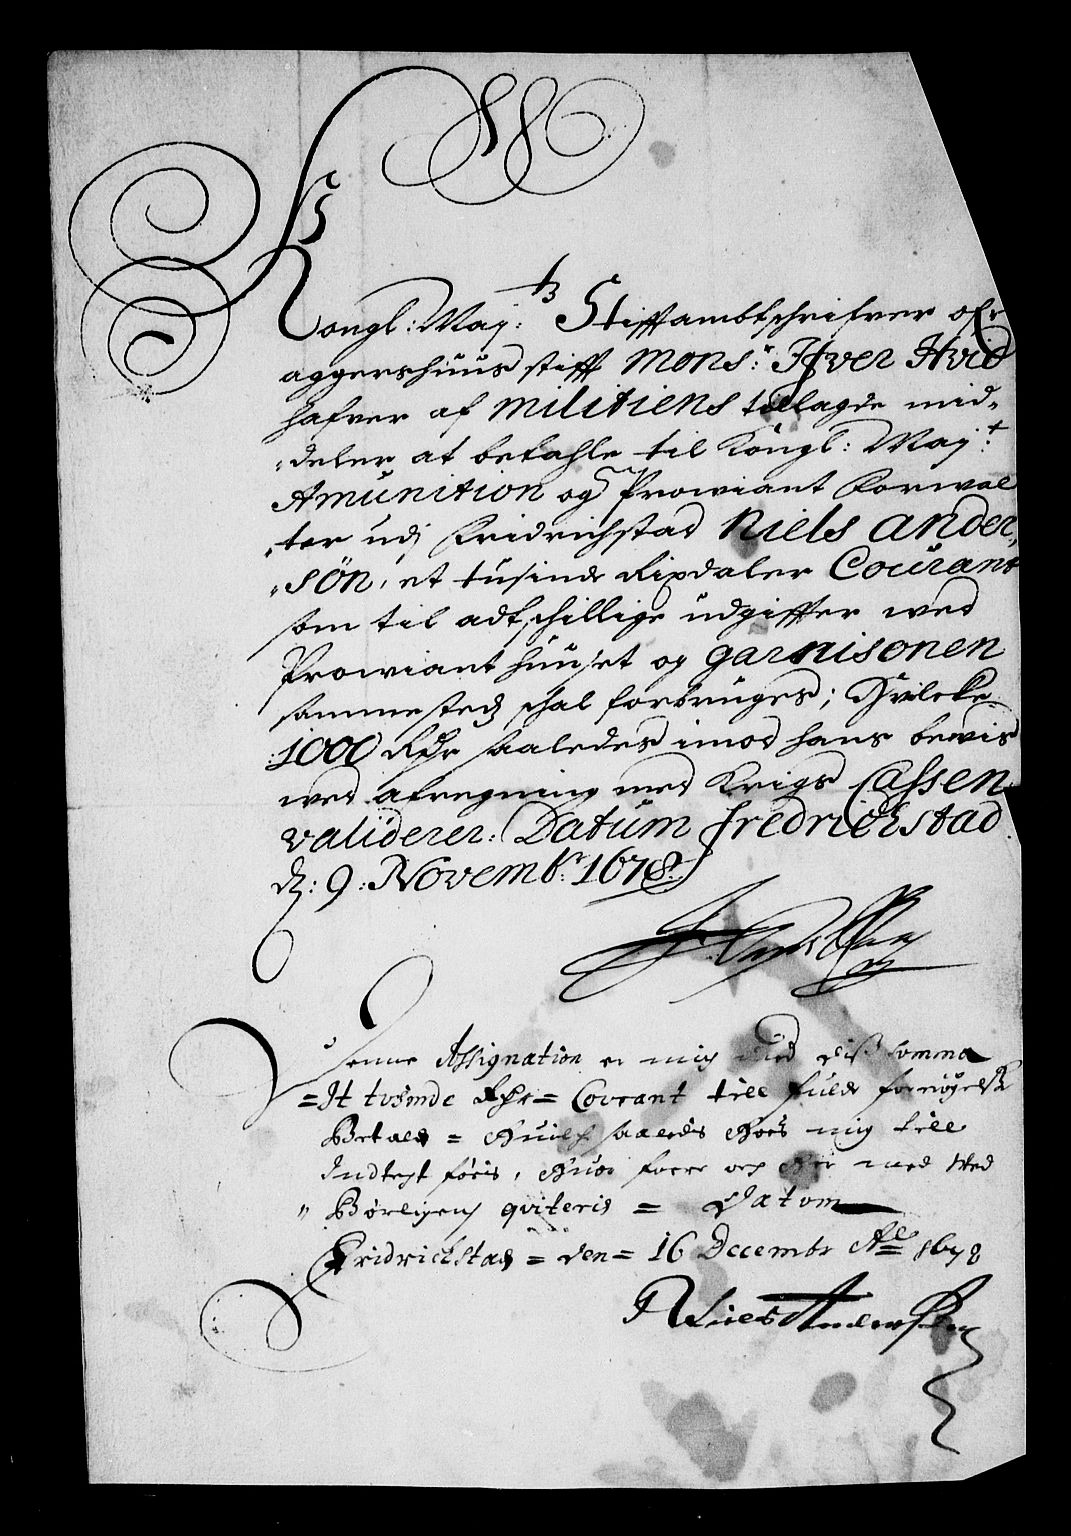 Kongl: May:tz Stifftambtschrifver ofr
aggershuus stifft Mons:r Ifver Hvid
hafver af militiens tillagde mid=
=deler at betahle til Kongl: May:t
Amunition og Prowiant Forwal
=ter udj Fridrichstad Niels ander=
=sön, et tusinde Rixdaler Courant
som til adtschillige udgiffter wed
Prowiant huuset og garnisonen
sammesteds schal forbruges; Hvilcke
1000 Rdr saaledes imod hans bewis
wed afregning med Krigs Cassen
validerer: Datum fredrichstad
d: 9: Novemb:r 1678

Denne Assignation er mig med diss somma
=Et tusinde Rdr= Courant till fulde fornøyelse
Betald = Huilche saaledis hoes mig till
Indtegt føris, Huor forre och her med Med
Børligen qviteris = Datom
Fridrichstad = den = 16 Decembr Ao 1678
Niels Andersen